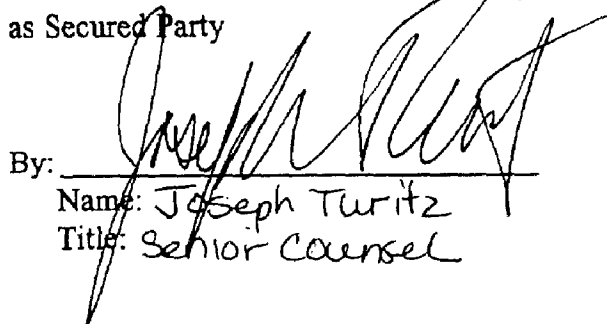 as Secured Party
By:
Name: Joseph Turitz
Title: Senior Counsel